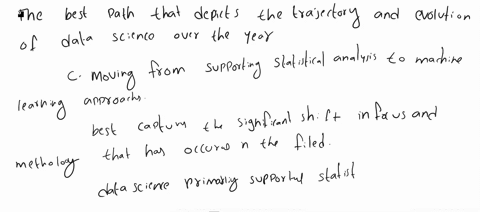 The best path that depicts the trajectory and evolution
of data science over the year
C. Moving from supporting statistical analysis to machine
learning approaches.
best capture the significant shift in focus and
methology that has occured in the filed.
data science primarily supported statist